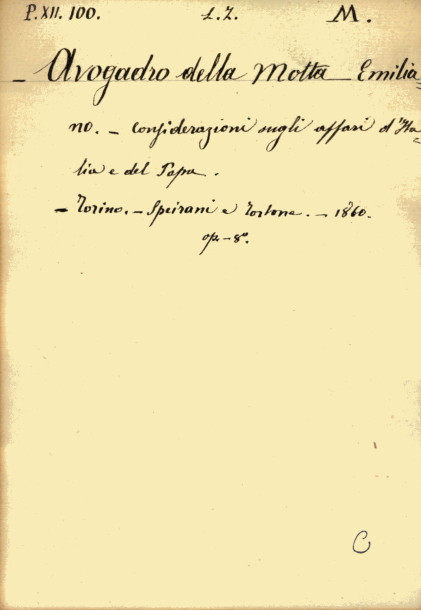 P.XII. 100. 1.7. M.
- Avogadro della Motta Emilia=
no. - Considerazioni sugli affari d'Ita=
lia e del Papa.
- Torino. - Speirani e Tortone. - 1860.
op-8º.
C